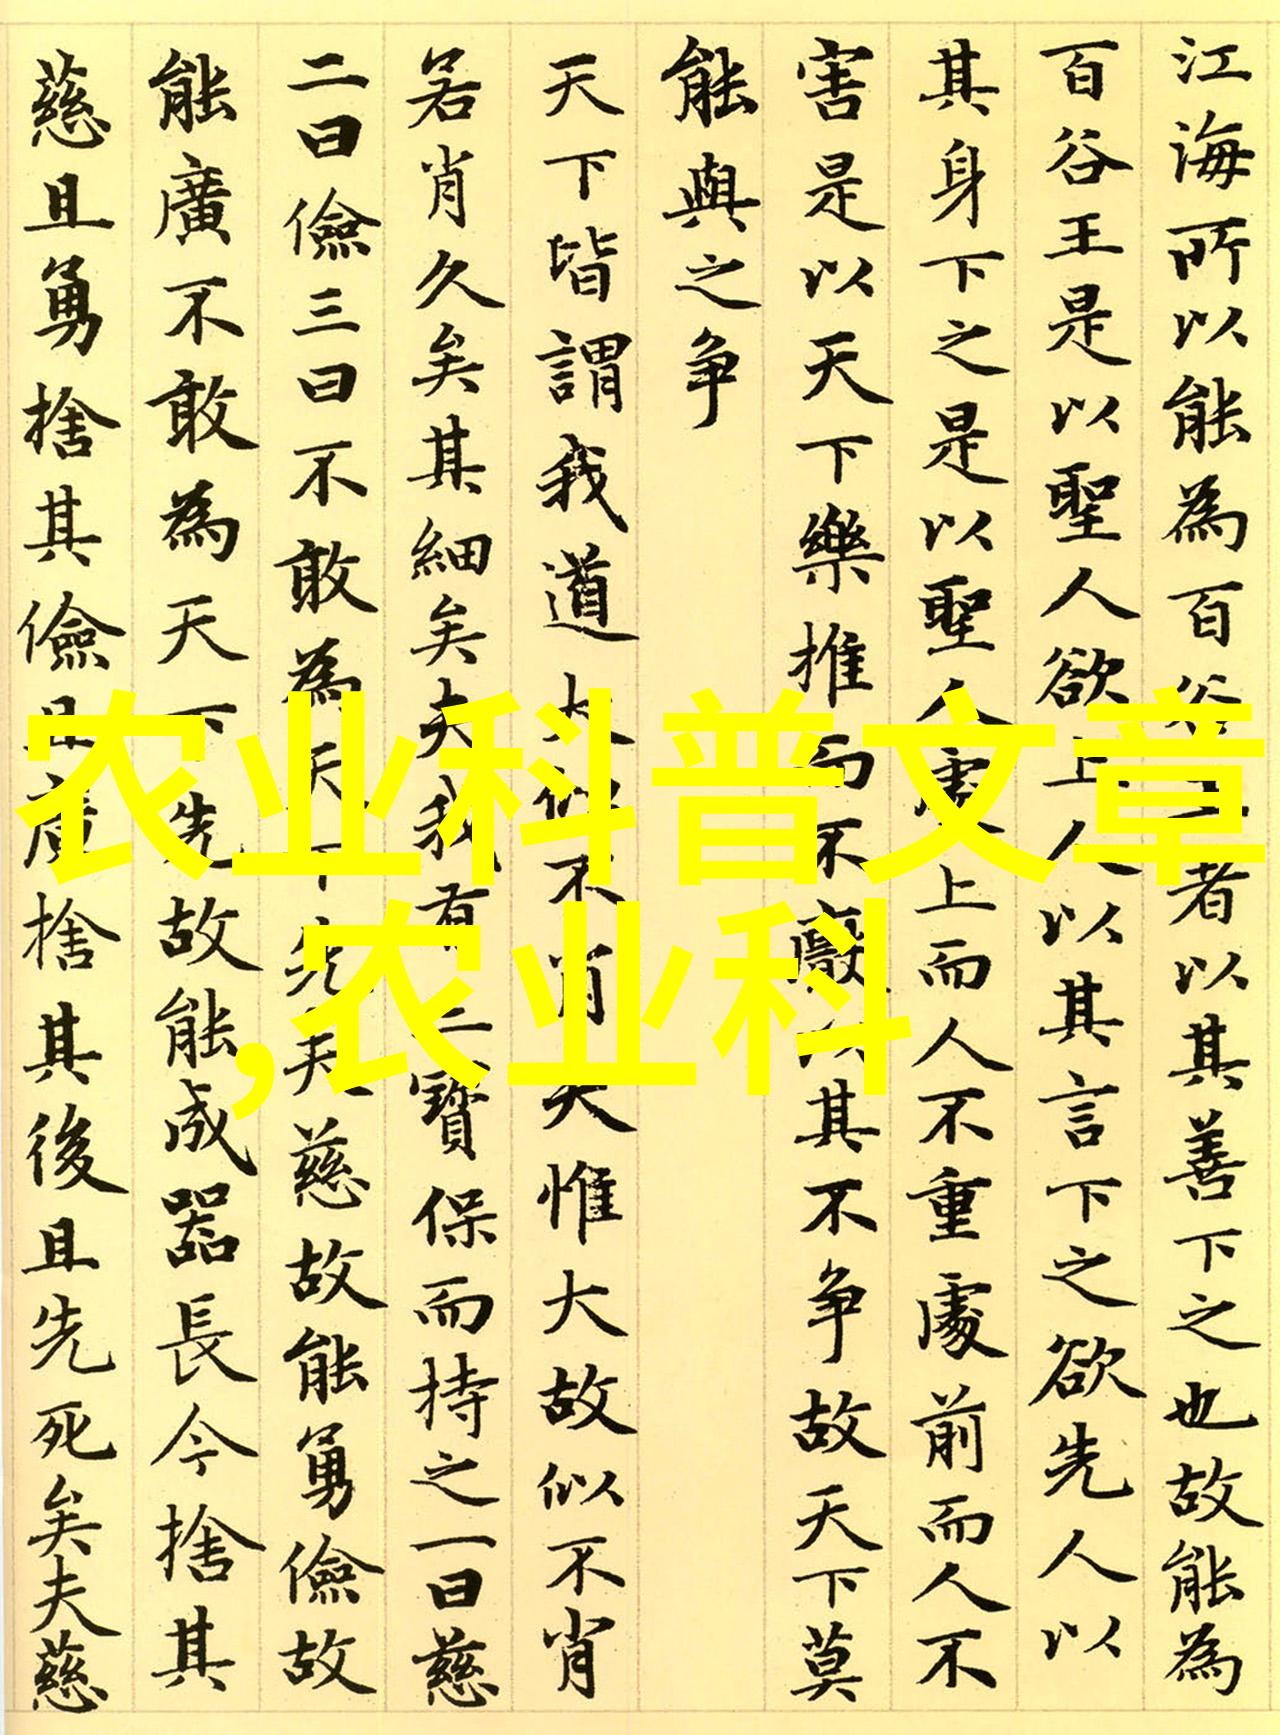 江海所以能為百谷王者以其善下之也故能為
百谷王是以聖人欲上人以其言下之欲先人以
其身下之是以聖人處上而人不重處前而人不
害是以天下樂推而不厭以其不争故天下莫
能與之争
天下皆謂我道大似不肖夫惟大故似不肖
若肖久矣其細矣夫我有三寶保而持之一曰慈
二曰儉三曰不敢為天下先夫慈故能勇儉故
能廣不敢為天下先故能成器長今捨其
慈且勇捨其儉且廣捨其後且先死矣夫慈
农业科普文章
,农业科